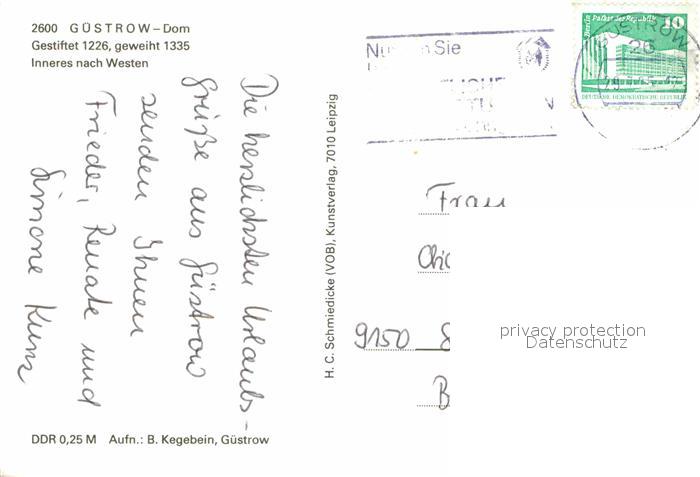 2600 GÜSTROW – Dom
Gestiftet 1226, geweiht 1335
Inneres nach Westen
Die herzlichsten Urlaubs-
grüße aus Güstrow
senden Ihnen
Frieder, Renate und
Simone Kunz
DDR 0,25 M Aufn.: B. Kegebein, Güstrow
H. C. Schmiedicke (VOB), Kunstverlag, 7010 Leipzig
Sie
Berlin, Palast der Republik 10
DEUTSCHE DEMOKRATISCHE REPUBLIK
GÜSTROW
26
Frau
9150
B
privacy protection
Datenschutz